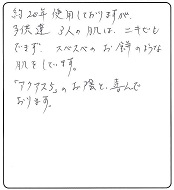 約20年使用しておりますが、
子供達 3人の肌は、ニキビも
でず、スベスベのお餅のような
肌をしています。
「アクアス5」のお陰と、喜んで
おります。